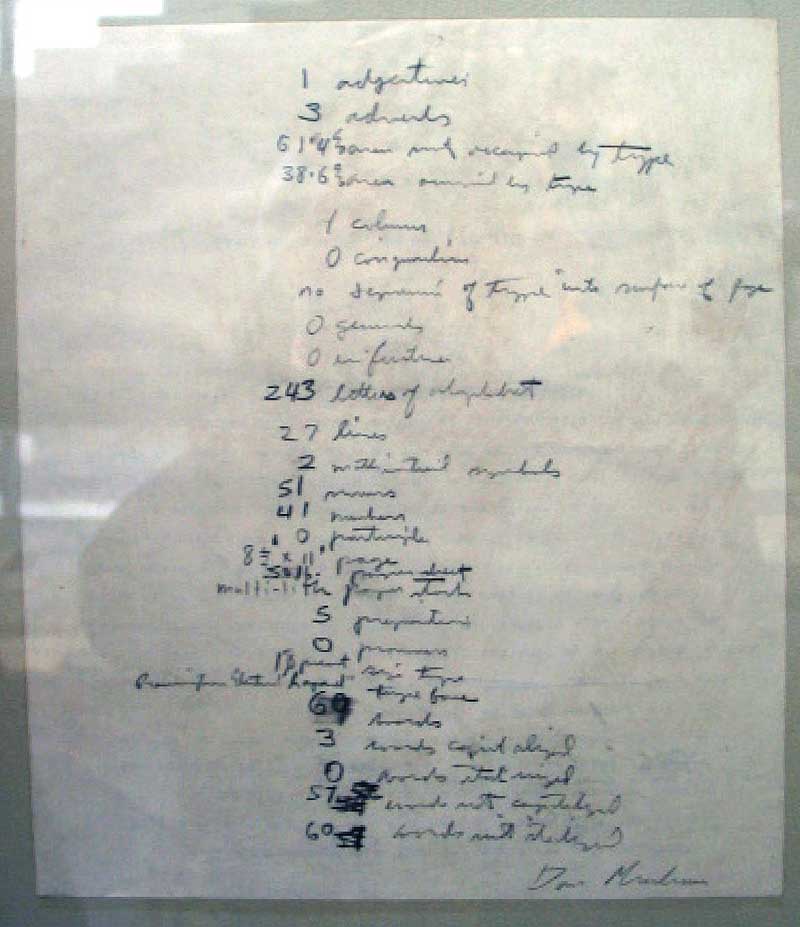 1 adjectives
3 adverbs
61.4% area not occupied by type
38.6% area occupied by type
1 columns
0 conjunctions
no depression of type into surface of page
0 gerunds
0 infinitives
243 letters of alphabet
27 lines
2 mathematical symbols
51 nouns
41 numbers
0 participle
8½" x 11" page
paper sheet
multi-lith paper stock
5 prepositions
0 pronouns
point size type
type face
60 words
3 words capitalized
0 words italicized
57 words not capitalized
60 words not italicized
Dan Graham